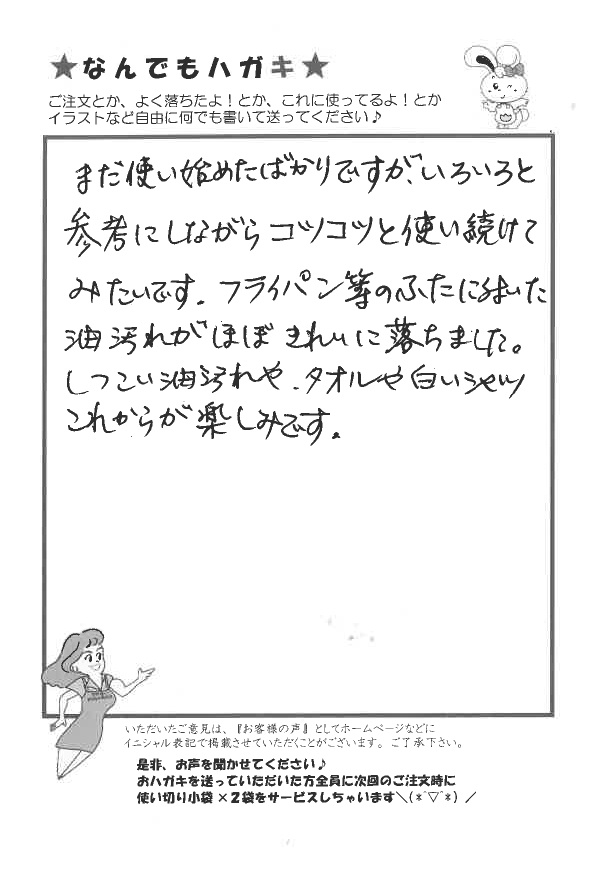 ★なんでもハガキ★
ご注文とか、よく落ちたよ！とか、これに使ってるよ！とか
イラストなど自由に何でも書いて送ってください♪
まだ使い始めたばかりですが、いろいろと
参考にしながらコツコツと使い続けて
みたいです。フライパン等のふたについた
油汚れがほぼきれいに落ちました。
しつこい油汚れや、タオルや白いシャツ
これからが楽しみです。
いただいたご意見は、『お客様の声』としてホームページなどに
イニシャル表記で掲載させていただくことがございます。ご了承下さい。
是非、お声を聞かせてください♪
おハガキを送っていただいた方全員に次回のご注文時に
使い切り小袋×2袋をサービスしちゃいます＼(*^▽^*)／